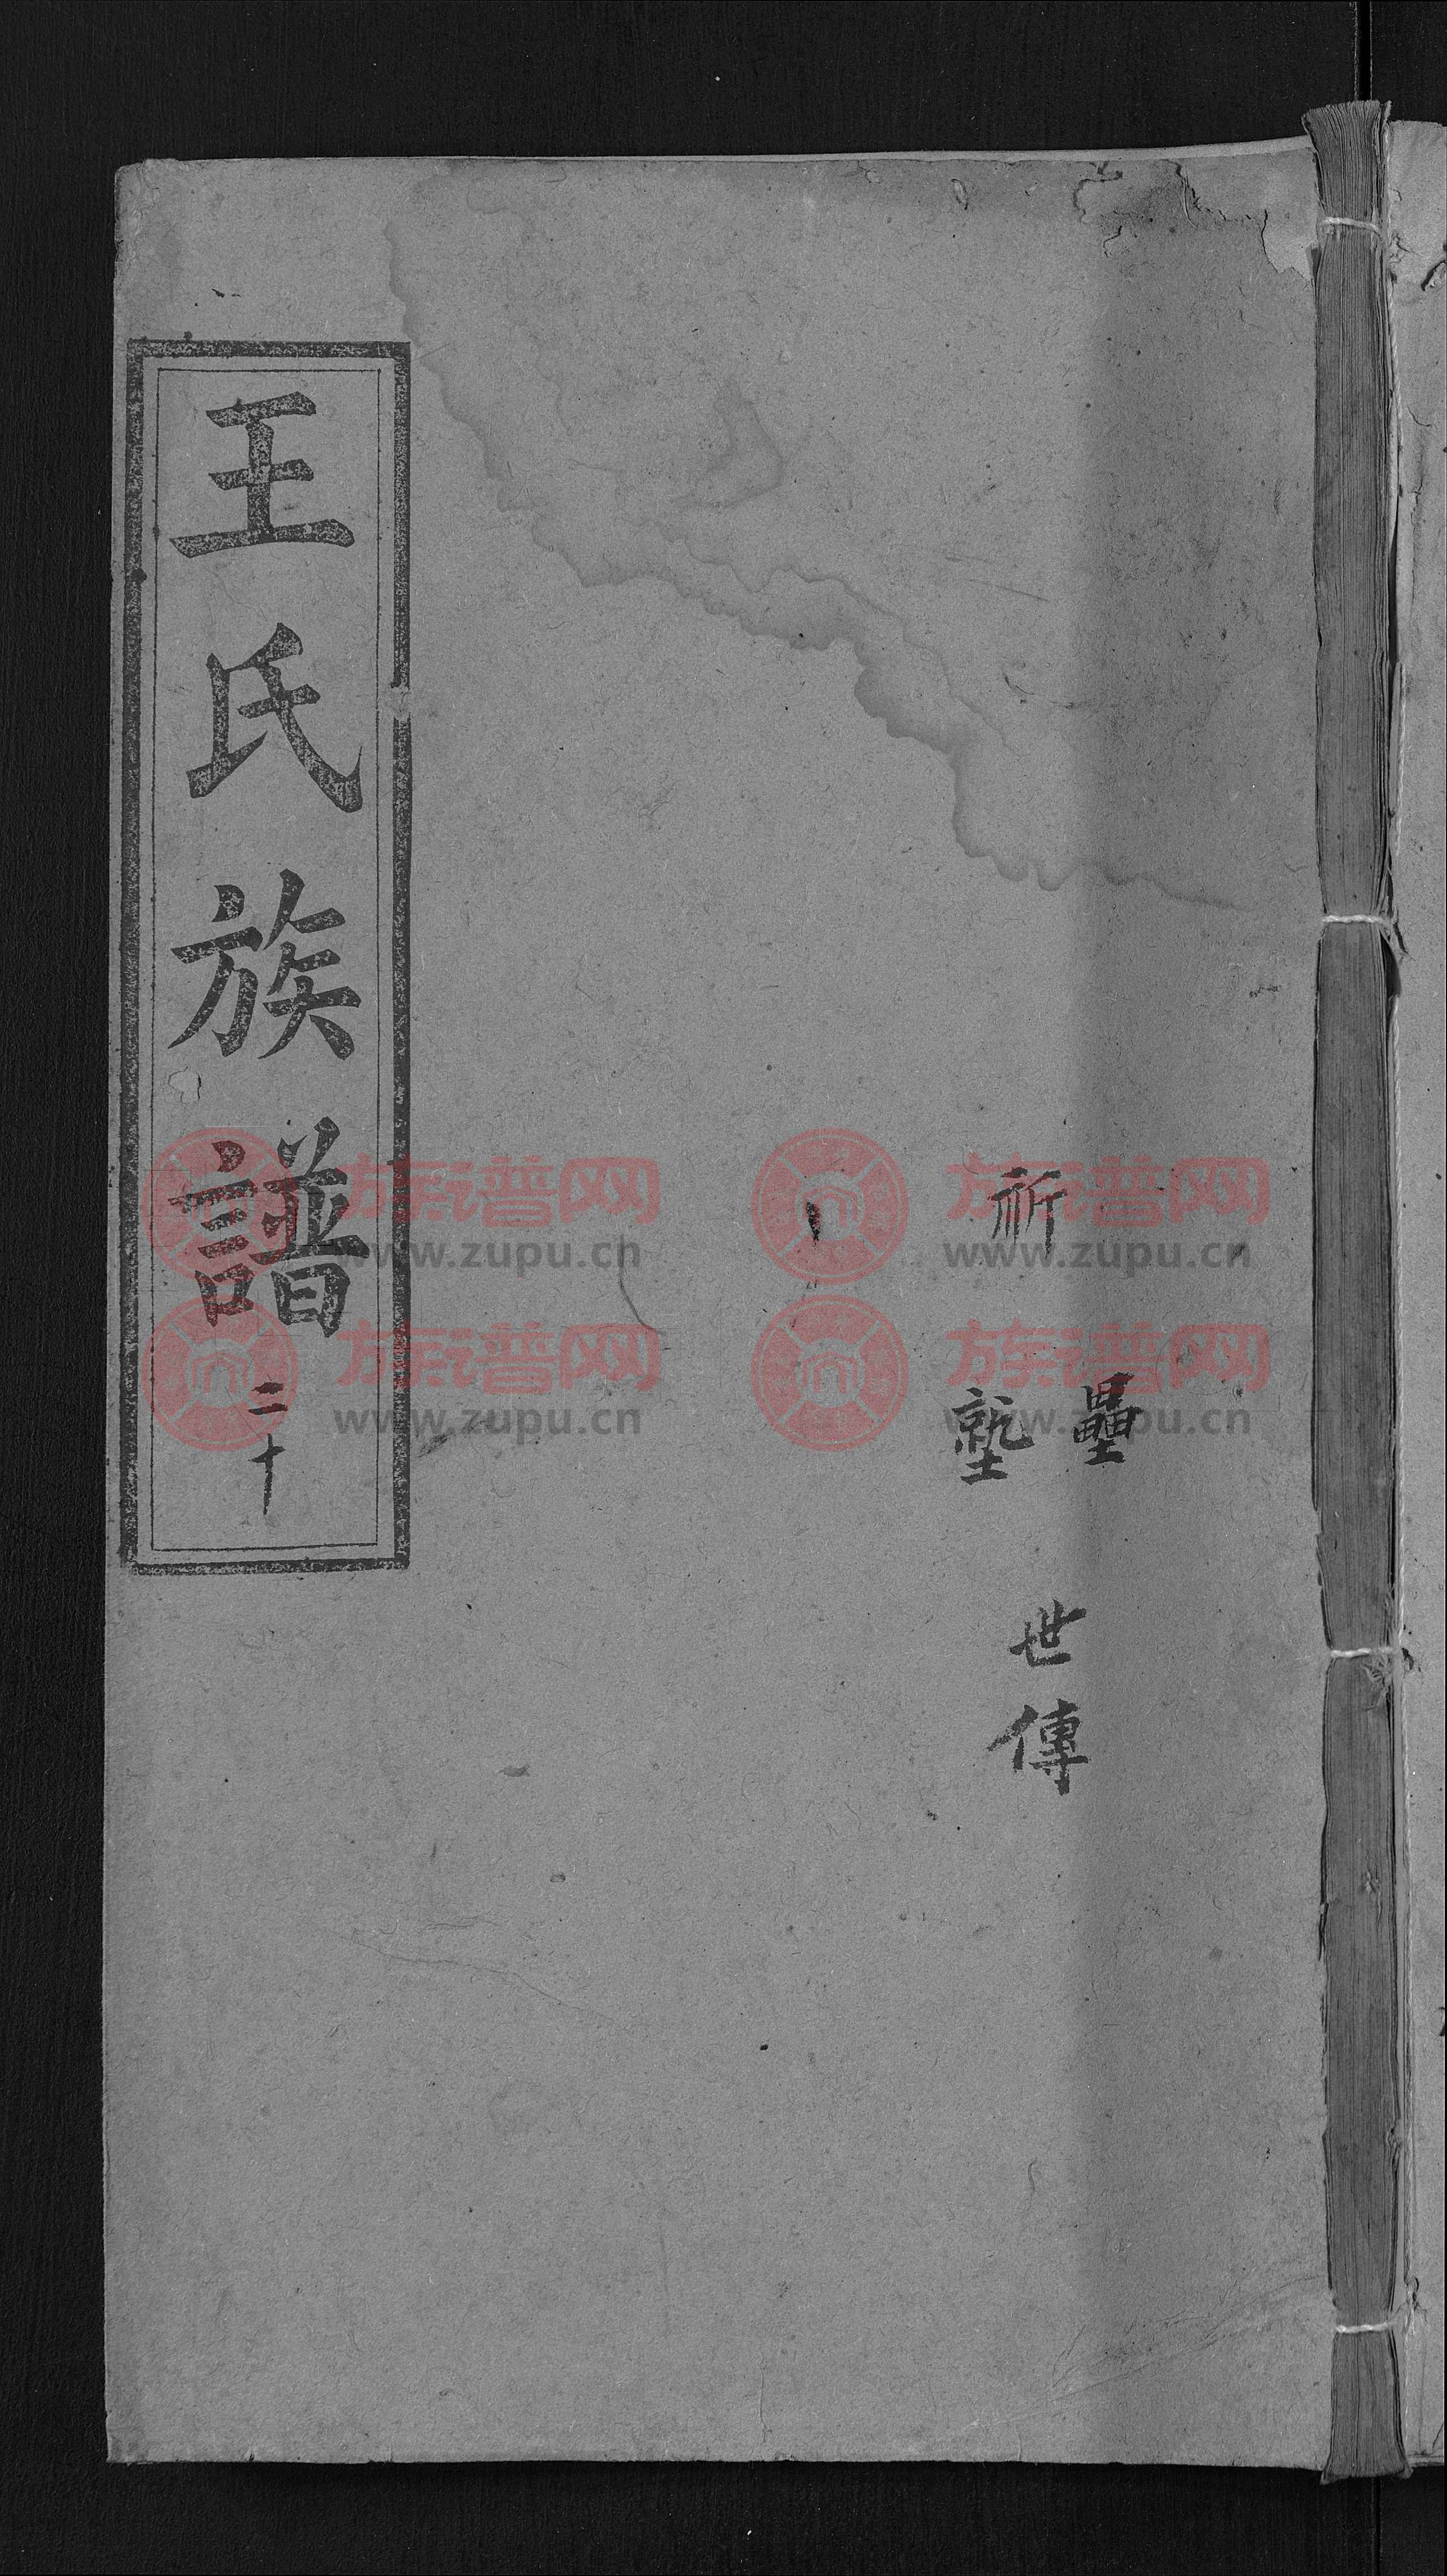 祈
壘
塾
世傳
王氏族譜
二十
族谱网
www.zupu.cn
族谱网
www.zupu.cn
族谱网
www.zupu.cn
族谱网
www.zupu.cn